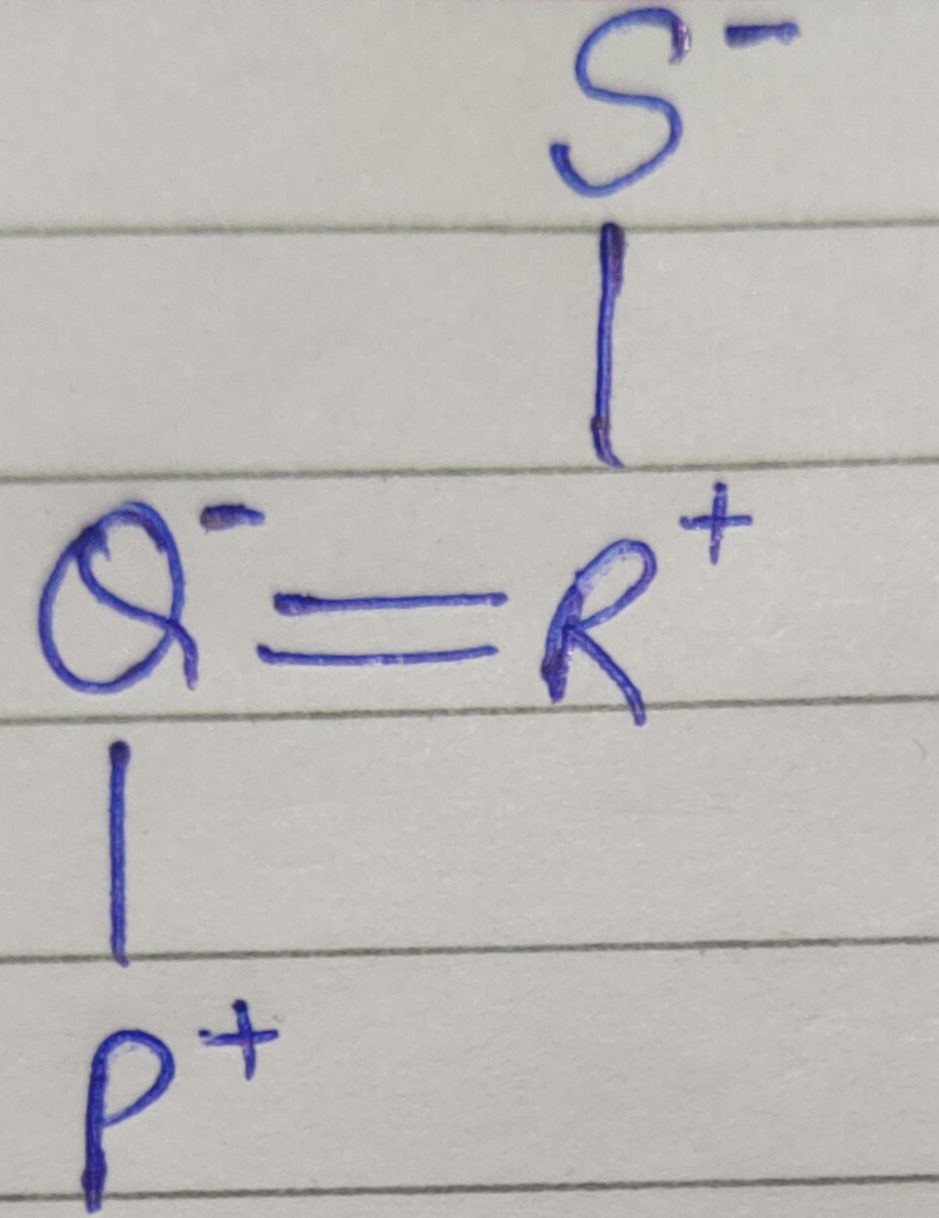 S⁻
|
Q⁻ = R⁺
|
P⁺